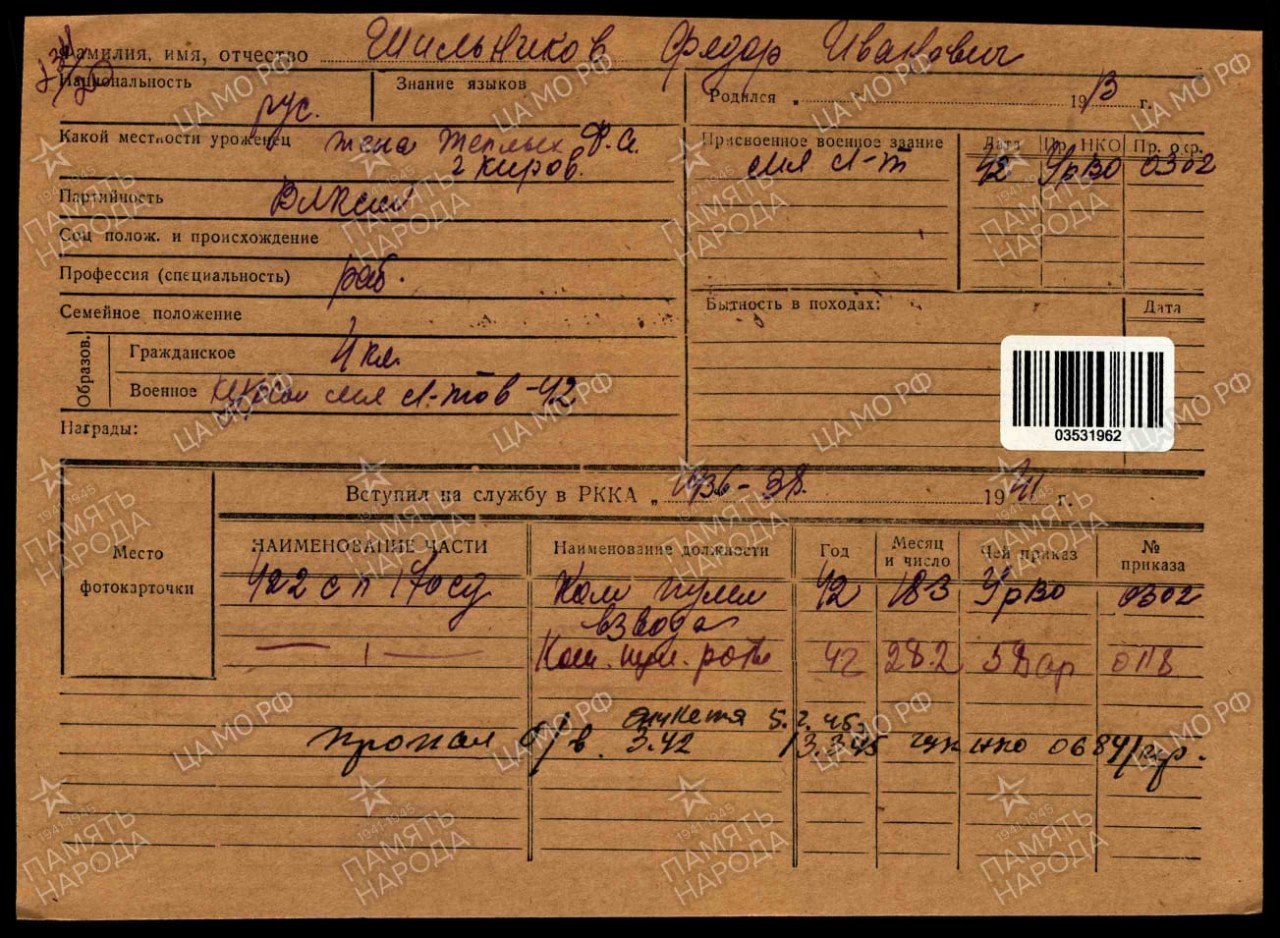 Фамилия, имя, отчество Шильников Фядор Иванович
Национальность рус.
Знание языков
Родился 1913 г.
Какой местности уроженец жена Теплых Ф.А.
г Киров.
Присвоенное военное звание Дата Пр. НКО Пр. окр.
мл л-т 42 УрВО 0302
Партийность ВЛКСМ
Соц полож. и происхождение
Профессия (специальность) раб.
Семейное положение
Бытность в походах: Дата
Образов.
Гражданское 4 кл.
Военное курсы мл л-тов-42
Награды:
03531962
Вступил на службу в РККА „ 1936-38. 1941 г.
Место
фотокарточки
НАИМЕНОВАНИЕ ЧАСТИ Наименование должности Год Месяц и число Чей приказ № приказа
422 сп 170сд Ком пулем взвода 42 18.3 УрВО 0302
— | — Ком. пул. роты 42 28.2 58ар
анкета 5.2.45.
пропал б/в. 3.42 / 3.3.45 гук нко 0684/пр.
ЦА МО РФ
ПАМЯТЬ НАРОДА
1941-1945